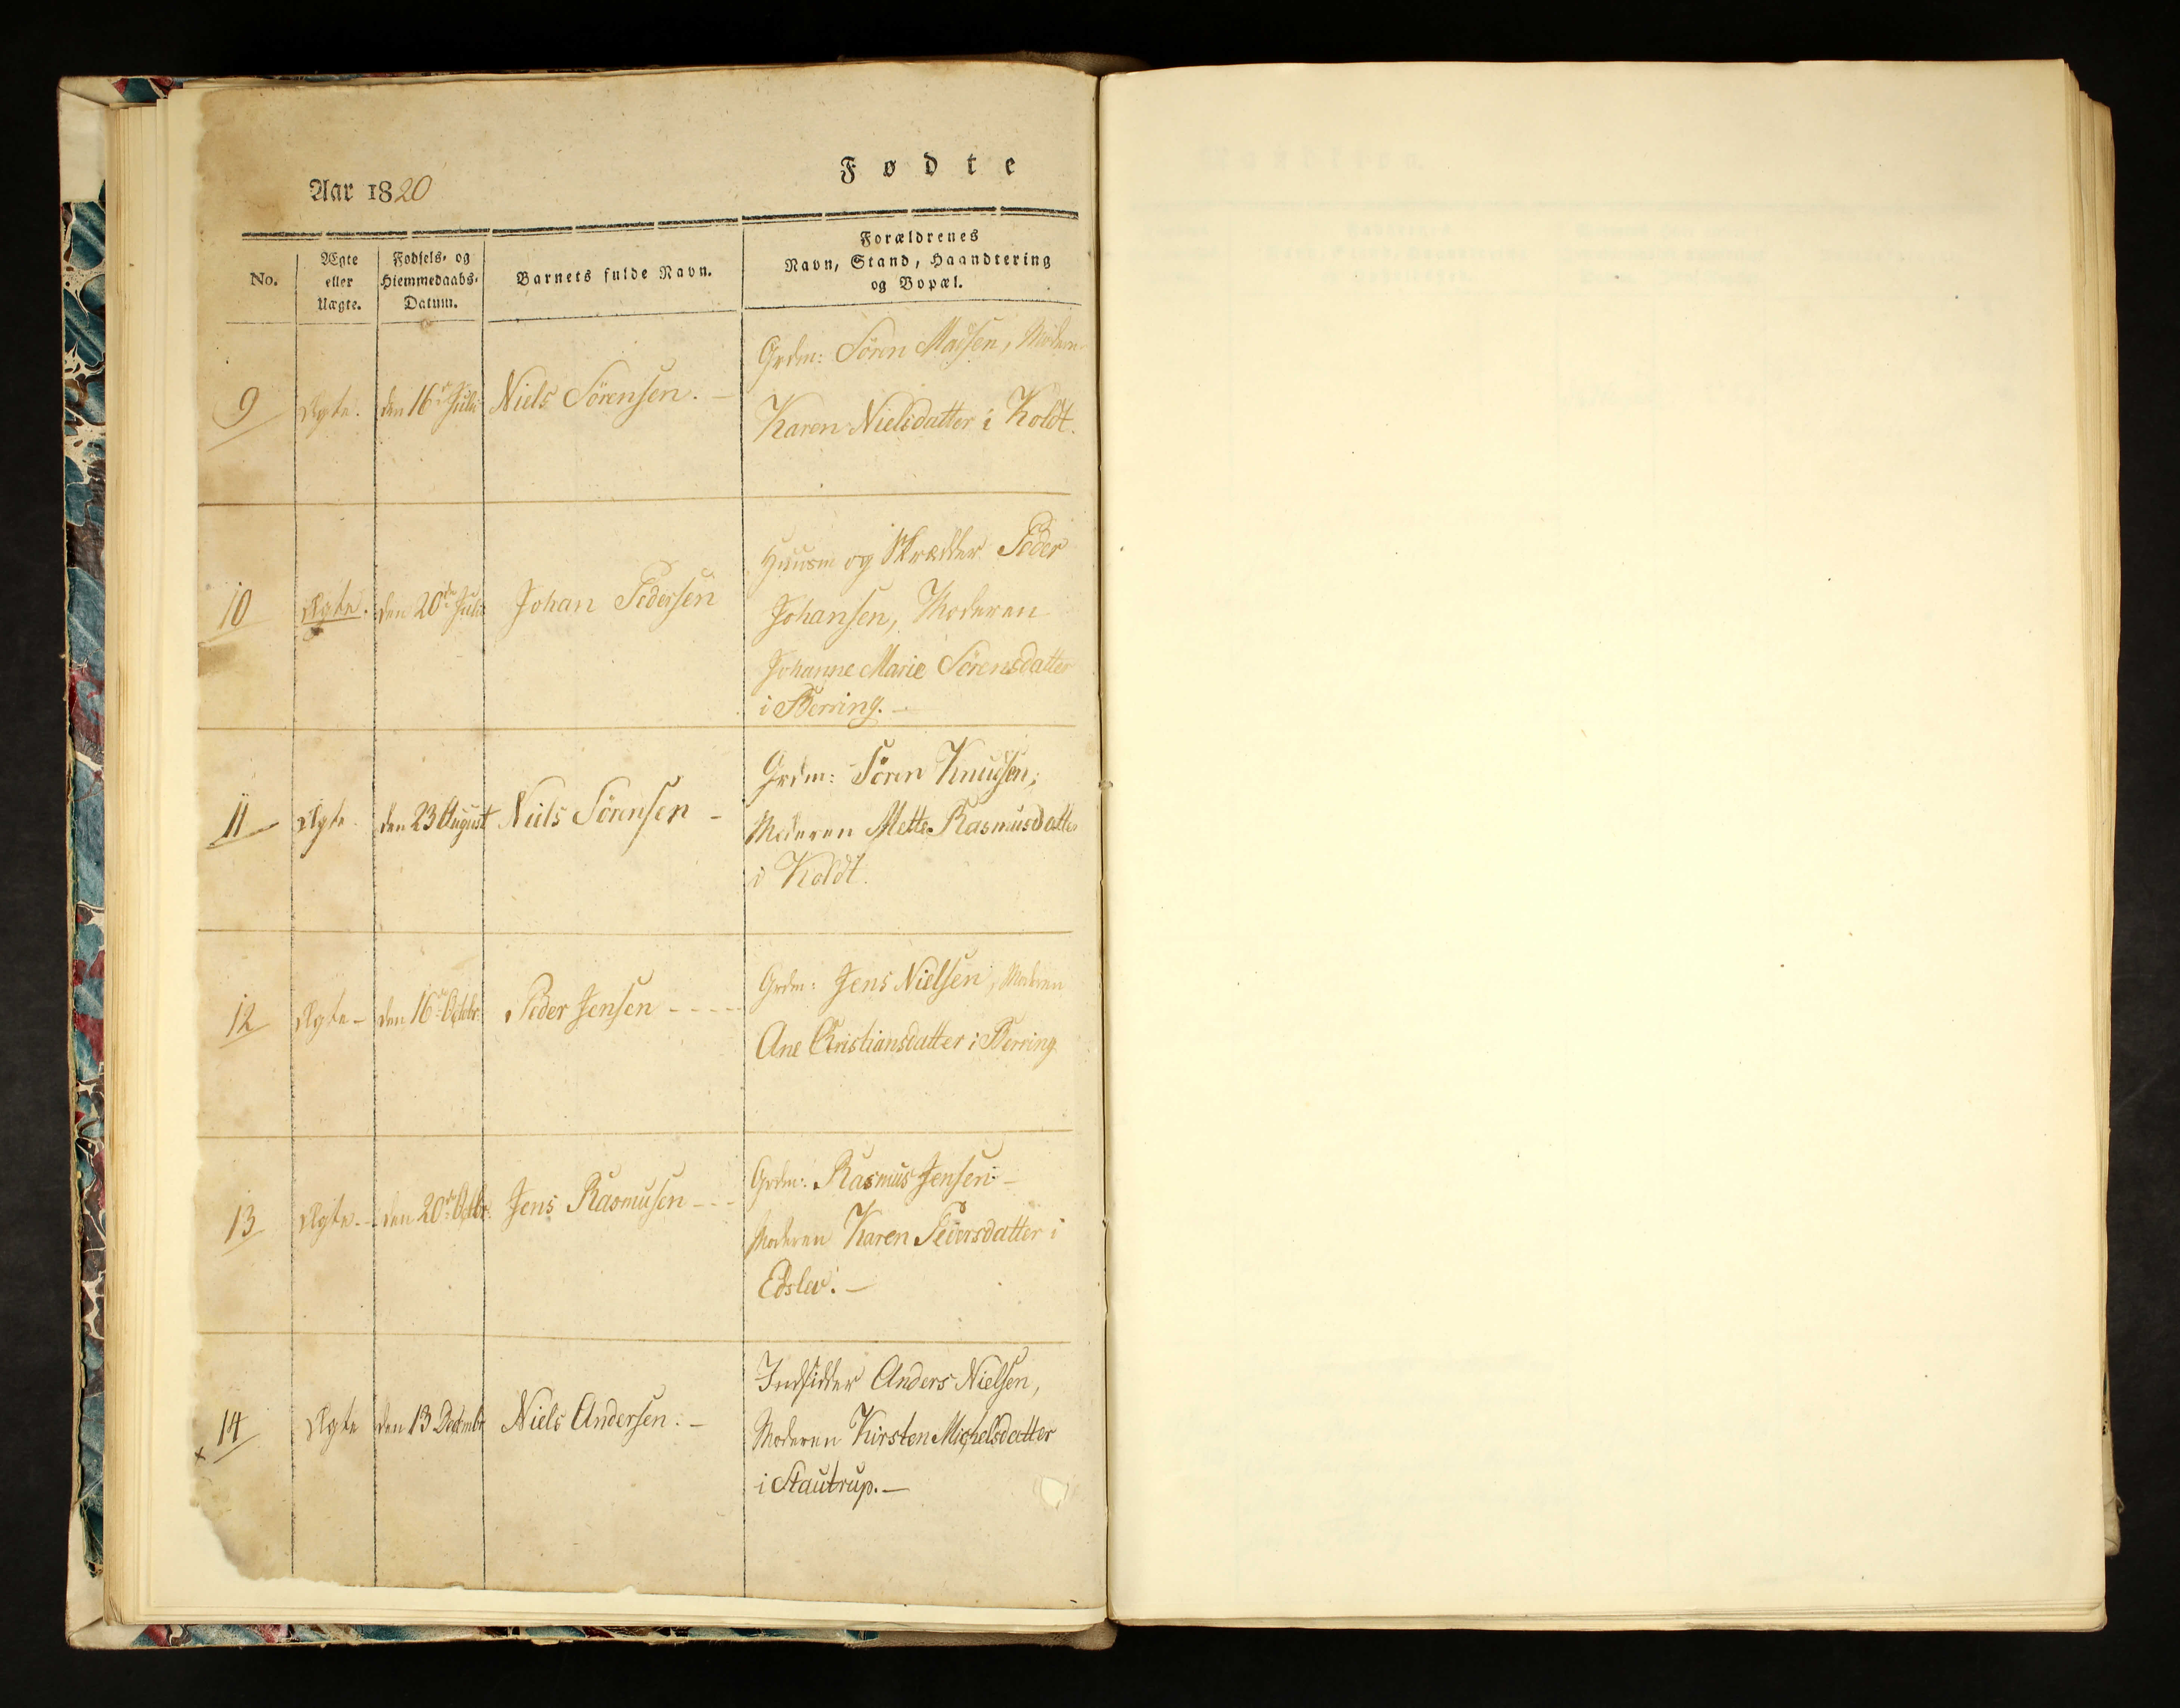 Fødte
Aar 1820
No.
Ægte
eller
Uægte.
Fødsels- og
Hiemmedaabs-
Datum.
Barnets fulde Navn.
Forældrenes
Navn, Stand, Haandtering
og Bopæl.
9 Ægte. den 16de Juli Niels Sörensen. –
Grdm: Sören Madsen, Moderen
Karen Nielsdatter i Koldt.
10 Ægte. den 20de Juli Johan Pedersen
Huusm og Skrædder Peder
Johansen, Moderen
Johanne Marie Sörensdatter
i Terring. –
11 Ægte. den 23 August Niels Sörensen –
Grdm: Sören Knudsen,
Moderen Mette Rasmusdatter
i Koldt.
12 Ægte – den 16de Octobr. Peder Jensen – – – –
Grdm: Jens Nielsen, Moderen
Ane Christiansdatter i Terring
13 Ægte. – den 20de Octbr. Jens Rasmusen – – –
Grdm: Rasmus Jensen –
Moderen Karen Pedersdatter i
Edslev. –
x 14 Ægte den 13 Decembr Niels Andersen. –
Indsidder Anders Nielsen,
Moderen Kirsten Michelsdatter
i Stautrup. –